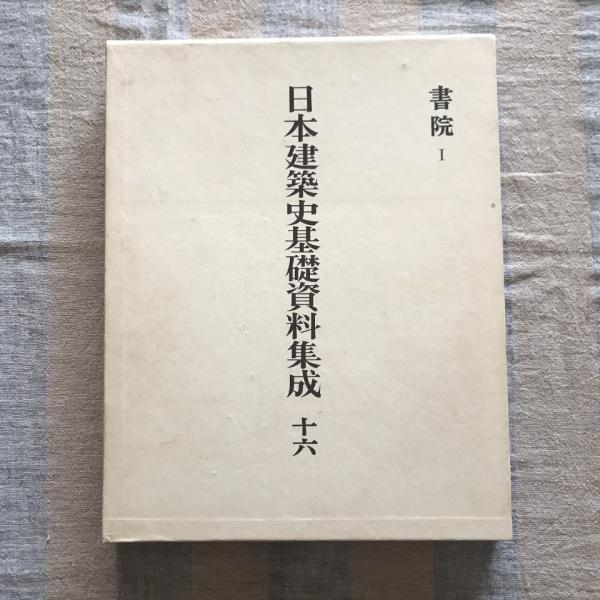 書院 I
日本建築史基礎資料集成 十六